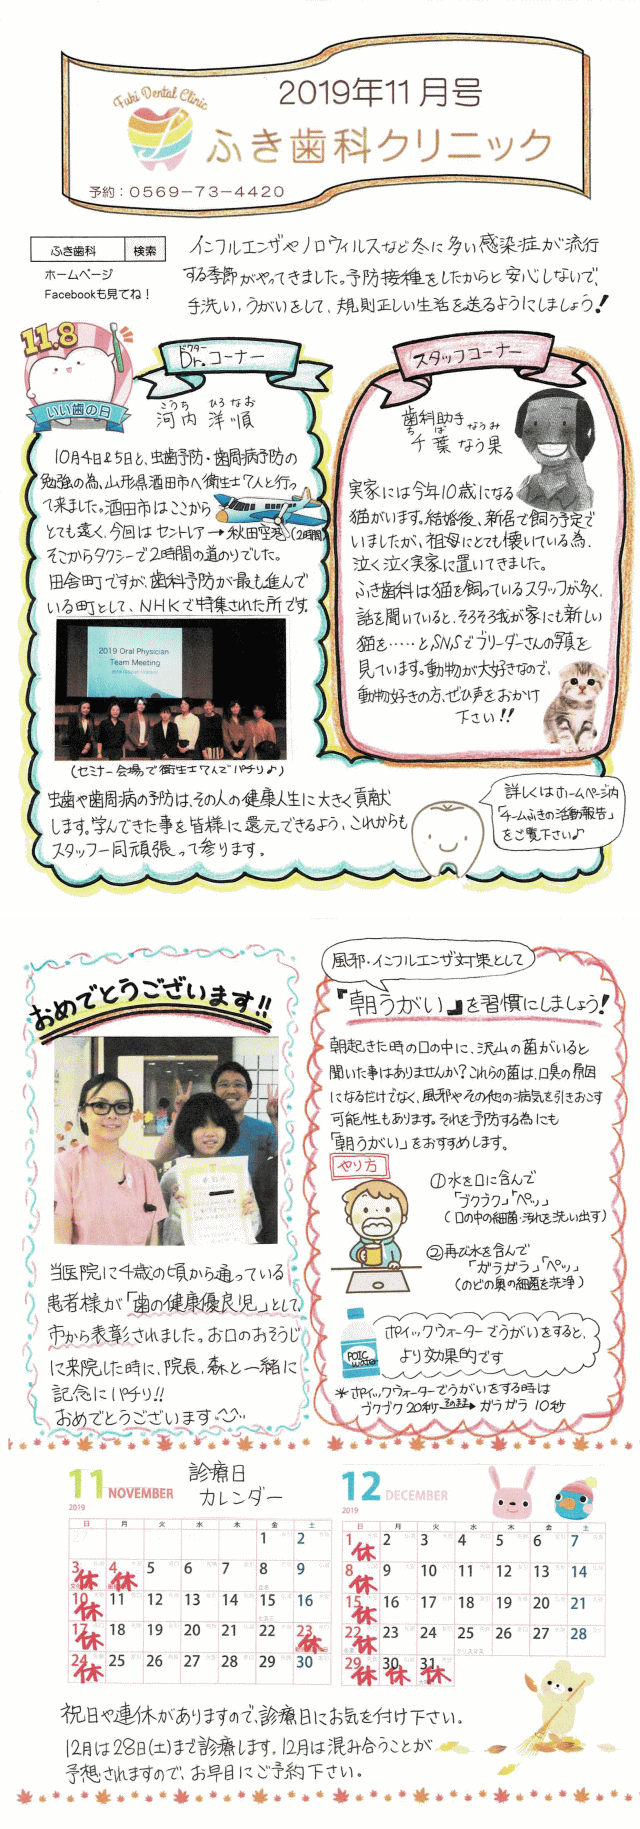 Fuki Dental Clinic
2019年11月号
ふき歯科クリニック
予約：0569-73-4420
ふき歯科 検索
ホームページ
Facebookも見てね！
インフルエンザやノロウィルスなど冬に多い感染症が流行
する季節がやってきました。予防接種をしたからと安心しないで、
手洗い、うがいをして、規則正しい生活を送るようにしましょう！
11.8
いい歯の日
ドクター
Dr.コーナー
こうち ひろなお
河内 洋順
10月4日と5日と、虫歯予防・歯周病予防の
勉強の為、山形県酒田市へ衛生士7人と行っ
て来ました。酒田市はここから
とても遠く、今回はセントレア→秋田空港(2時間)
そこからタクシーで2時間の道のりでした。
田舎町ですが、歯科予防が最も進んで
いる町として、NHKで特集された所です。
2019 Oral Physician
Team Meeting
(セミナー会場で衛生士7人でパチリ♪)
虫歯や歯周病の予防は、その人の健康人生に大きく貢献
します。学んできた事を皆様に還元できるよう、これからも
スタッフ一同頑張って参ります。
スタッフコーナー
歯科助手
ちば なうみ
千葉 なう果
実家には今年10歳になる
猫がいます。結婚後、新居で飼う予定で
いましたが、祖母にとても懐いている為、
泣く泣く実家に置いてきました。
ふき歯科は猫を飼っているスタッフが多く、
話を聞いていると、そろそろ我が家にも新しい
猫を……と、SNSでブリーダーさんの写真を
見ています。動物が大好きなので、
動物好きの方、ぜひ声をおかけ
下さい！！
詳しくはホームページ内
「チームふきの活動報告」
をご覧下さい♪
おめでとうございます！！
当医院に4歳の頃から通っている
患者様が「歯の健康優良児」として、
市から表彰されました。お口のおそうじ
に来院した時に、院長、森と一緒に
記念にパチリ！！
おめでとうございます
風邪・インフルエンザ対策として
『朝うがい』を習慣にしましょう！
朝起きた時の口の中に、沢山の菌がいると
聞いた事はありませんか？これらの菌は、口臭の原因
になるだけでなく、風邪やその他の病気を引きおこす
可能性もあります。それを予防する為にも
「朝うがい」をおすすめします。
やり方
①水を口に含んで
「ブクブク」「ペッ」
(口の中の細菌・汚れを洗い出す)
②再び水を含んで
「ガラガラ」「ペッ」
(のどの奥の細菌を洗浄)
POIC
water
ポイックウォーターでうがいをすると、
より効果的です
＊ポイックウォーターでうがいをする時は
ブクブク20秒 そのまま→ ガラガラ10秒
診療日
カレンダー
11 NOVEMBER
2019
日 月 火 水 木 金 土
1 2
3休 4休 5 6 7 8 9
10休 11 12 13 14 15 16
17休 18 19 20 21 22 23休
24休 25 26 27 28 29 30
12 DECEMBER
2019
日 月 火 水 木 金 土
1休 2 3 4 5 6 7
8休 9 10 11 12 13 14
15休 16 17 18 19 20 21
22休 23 24 25 26 27 28
クリスマス
29休 30休 31休
祝日や連休がありますので、診療日にお気を付け下さい。
12月は28日(土)まで診療します。12月は混み合うことが
予想されますので、お早目にご予約下さい。